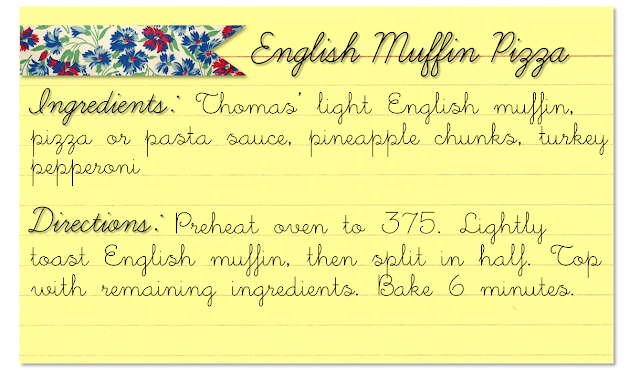 English Muffin Pizza
Ingredients: Thomas' light English muffin,
pizza or pasta sauce, pineapple chunks, turkey
pepperoni
Directions: Preheat oven to 375. Lightly
toast English muffin, then split in half. Top
with remaining ingredients. Bake 6 minutes.